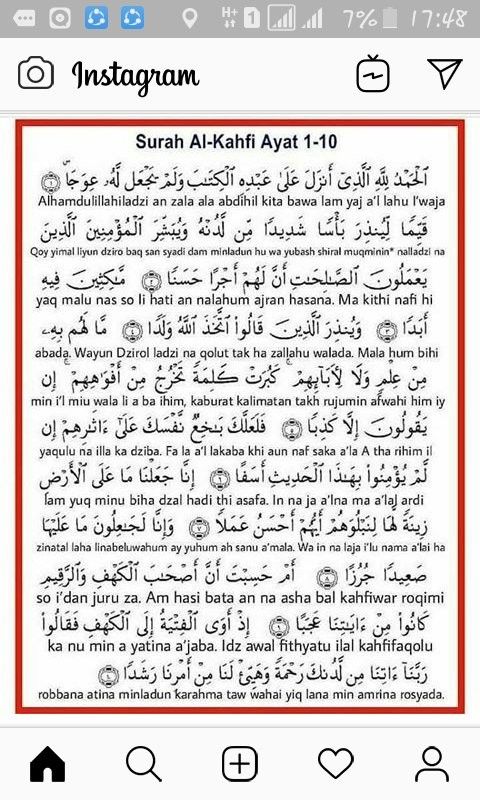 H+ 1 7% 17:48
Instagram
Surah Al-Kahfi Ayat 1-10
الْحَمْدُ لِلَّهِ الَّذِي أَنزَلَ عَلَىٰ عَبْدِهِ الْكِتَابَ وَلَمْ يَجْعَل لَّهُ عِوَجًا ۜ ١
Alhamdulillahiladzi an zala ala abdihil kita bawa lam yaj a'l lahu I'waja
قَيِّمًا لِّيُنذِرَ بَأْسًا شَدِيدًا مِّن لَّدُنْهُ وَيُبَشِّرَ الْمُؤْمِنِينَ الَّذِينَ
Qoy yimal liyun dziro baq san syadi dam minladun hu wa yubash shiral muqminin* nalladzi na
يَعْمَلُونَ الصَّالِحَاتِ أَنَّ لَهُمْ أَجْرًا حَسَنًا ٢ مَّاكِثِينَ فِيهِ
yaq malu nas so li hati an nalahum ajran hasana. Ma kithi nafi hi
أَبَدًا ٣ وَيُنذِرَ الَّذِينَ قَالُوا اتَّخَذَ اللَّهُ وَلَدًا ٤ مَّا لَهُم بِهِ
abada. Wayun Dzirol ladzi na qolut tak ha zallahu walada. Mala hum bihi
مِنْ عِلْمٍ وَلَا لِآبَائِهِمْ ۚ كَبُرَتْ كَلِمَةً تَخْرُجُ مِنْ أَفْوَاهِهِمْ ۚ إِن
min i'l miu wala li a ba ihim, kaburat kalimatan takh rujumin afwahi him iy
يَقُولُونَ إِلَّا كَذِبًا ٥ فَلَعَلَّكَ بَاخِعٌ نَّفْسَكَ عَلَىٰ آثَارِهِمْ إِن
yaqulu na illa ka dziba. Fa la a'l lakaba khi aun naf saka a'la A tha rihim il
لَّمْ يُؤْمِنُوا بِهَٰذَا الْحَدِيثِ أَسَفًا ٦ إِنَّا جَعَلْنَا مَا عَلَى الْأَرْضِ
lam yuq minu biha dzal hadi thi asafa. In na ja a'lna ma a'laj ardi
زِينَةً لَّهَا لِنَبْلُوَهُمْ أَيُّهُمْ أَحْسَنُ عَمَلًا ٧ وَإِنَّا لَجَاعِلُونَ مَا عَلَيْهَا
zinatal laha linabeluwahum ay yuhum ah sanu a'mala. Wa in na laja i'lu nama a'lai ha
صَعِيدًا جُرُزًا ٨ أَمْ حَسِبْتَ أَنَّ أَصْحَابَ الْكَهْفِ وَالرَّقِيمِ
so i'dan juru za. Am hasi bata an na asha bal kahfiwar roqimi
كَانُوا مِنْ آيَاتِنَا عَجَبًا ٩ إِذْ أَوَى الْفِتْيَةُ إِلَى الْكَهْفِ فَقَالُوا
ka nu min a yatina a'jaba. Idz awal fithyatu ilal kahfifaqolu
رَبَّنَا آتِنَا مِن لَّدُنكَ رَحْمَةً وَهَيِّئْ لَنَا مِنْ أَمْرِنَا رَشَدًا ١٠
robbana atina minladun karahma taw wahai yiq lana min amrina rosyada.